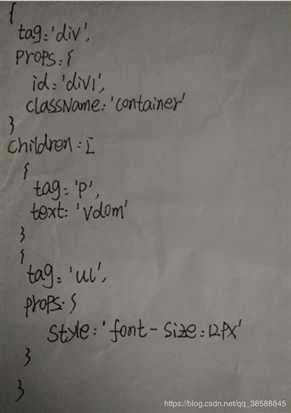 {
tag:'div',
props:{
id:'div1',
className:'container'
}
children:[
{
tag:'p',
text:'Vdom'
}
{
tag:'ul',
props:{
Style:'font-size:12px'
}
}
https://blog.csdn.net/qq_38588845